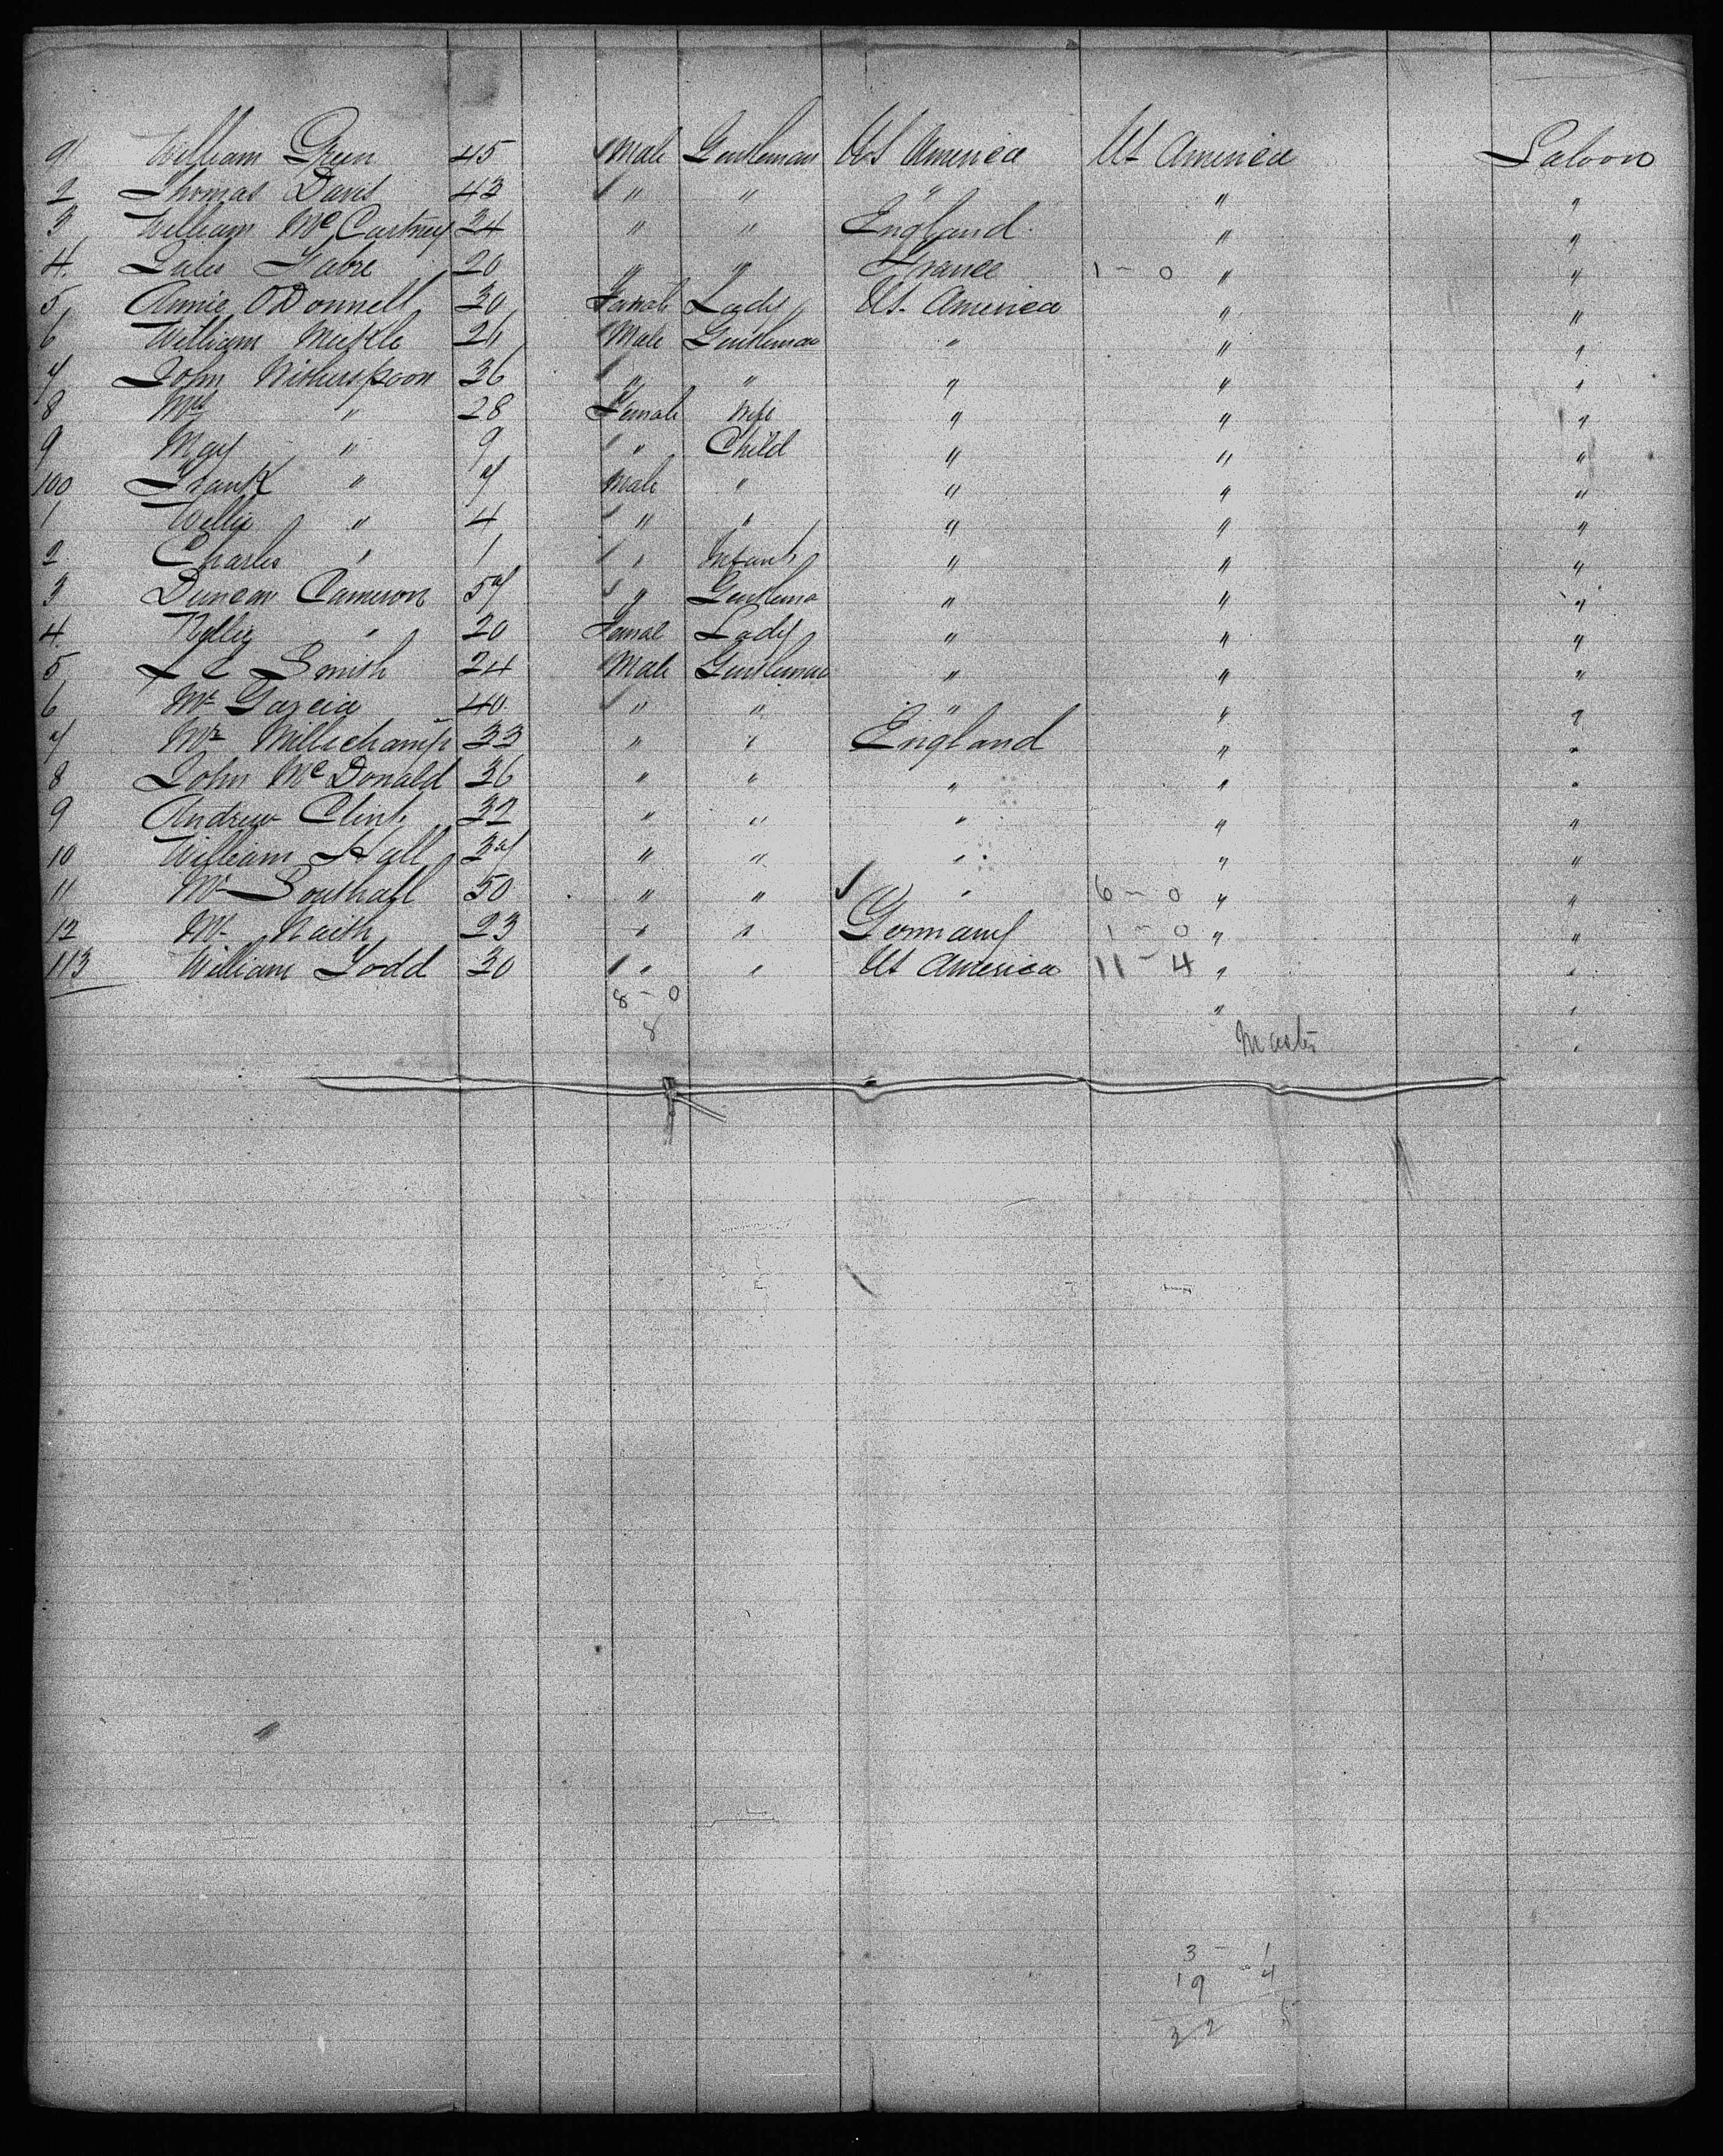 91 William Green 45 Male Gentleman Ut America Ut America Saloon
2 Thomas Davis 43 " " " " "
3 William McCartney 24 " " England " "
4. Jules Fabre 20 " " France 1 - 0 " "
5, Annie O'Donnell 30 Female Lady Ut. America " "
6 William Mickle 26 Male Gentleman " " "
7 John Witherspoon 36 " " " " "
8 Mrs " 28 Female Wife " " "
9 May " 9 " Child " " "
100 Frank " 7 Male " " " "
1 Willie " 4 " " " " "
2 Charles " 1 " Infant " " "
3 Duncan Cameron 57 " Gentlema " " "
4. Nellie " 20 Femal Lady " " "
5 L C Smith 24 Male Gentleman " " "
6 Mr Garcia 40. " " " " "
7 Mr Millichamp 33 " " England " "
8 John McDonald 36 " " " " "
9 Andrew Clink 32 " " " " "
10 William Hall 37 " " " " "
11 Mr Southall 50 " " " 6 - 0 " "
12 Mr 23 " " Germany 1 - 0 " "
113 William Todd 30 " " Ut America 11 - 4 " "
8 - 0 " "
8 Master "
3 - 1
19 - 4
32 5